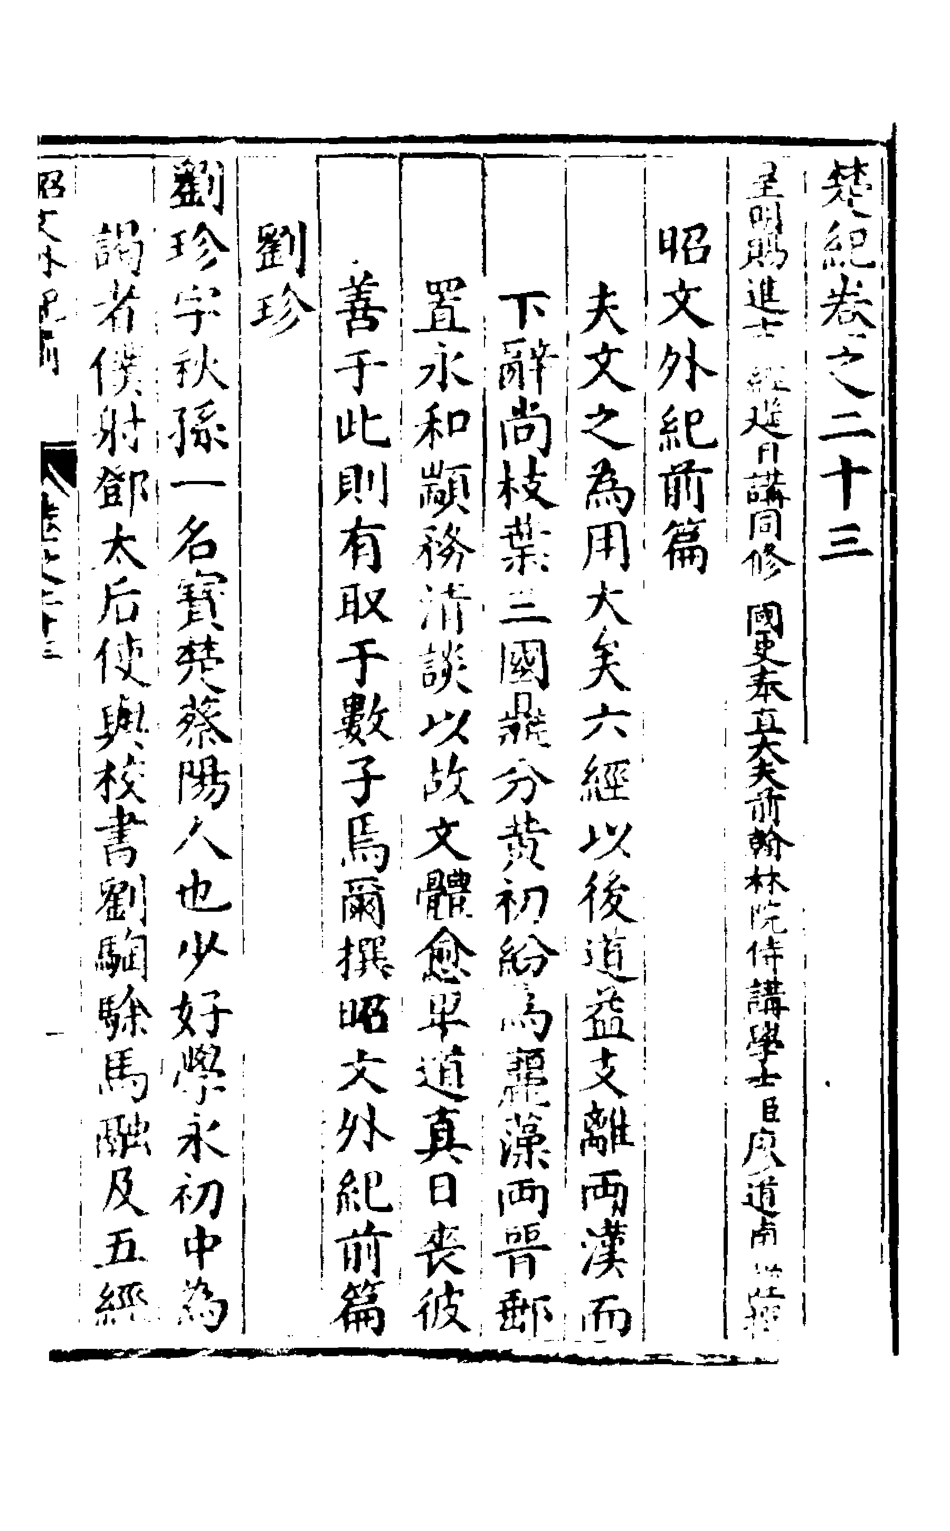 楚紀卷之二十三
皇明賜進士 經筵日講同修 國史奉直大夫前翰林院侍講學士臣廖道南
昭文外紀前篇
夫文之為用大矣六經以後道益支離兩漢而
下辭尚枝葉三國鼎分黃初紛為麗藻兩晉郵
置永和顓務清談以故文體愈卑道真日喪彼
善于此則有取于數子焉爾撰昭文外紀前篇
劉珍
劉珍字秋孫一名寶楚蔡陽人也少好學永初中為
謁者僕射鄧太后使與校書劉騊駼馬融及五經
昭文外紀前 卷之二十三 一